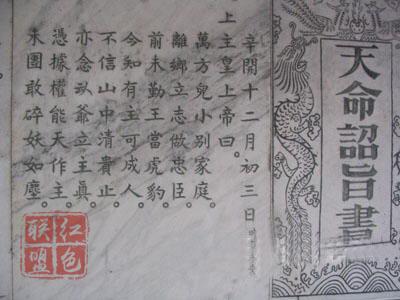 天命詔旨書
辛開十二月初三日
上主皇上帝曰。
萬方兒小別家庭。
離鄉立志做忠臣。
前未勤王當虎豹。
今知有主可成人。
不信山中清貴止。
亦念爺立主真。
憑據權能天作主。
團敢碎妖如塵。
红色
联盟